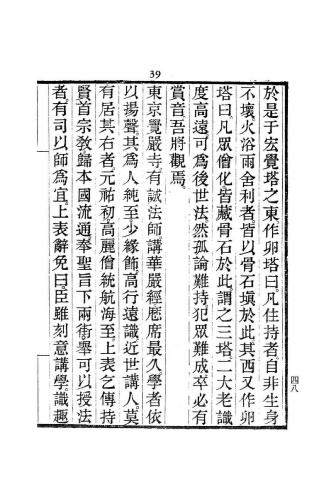 39
於是于宏覺塔之東作卵塔曰凡住持者自非生身
不壞火浴雨舍利者皆以骨石塡於此其西又作卵
塔曰凡眾僧化皆藏骨石於此謂之三塔二大老識
度高遠可爲後世法然孤論難持犯眾難成卒必有
賞音吾將觀焉
東京覺嚴寺有誠法師講華嚴經歷席最久學者依
以揚聲其爲人純至少緣飾高行遠識近世講人莫
有居其右者元祐初高麗僧統航海至上表乞傳持
賢首宗教歸本國流通奉聖旨下兩街舉可以授法
者有司以師爲宜上表辭免曰臣雖刻意講學識趣
四八